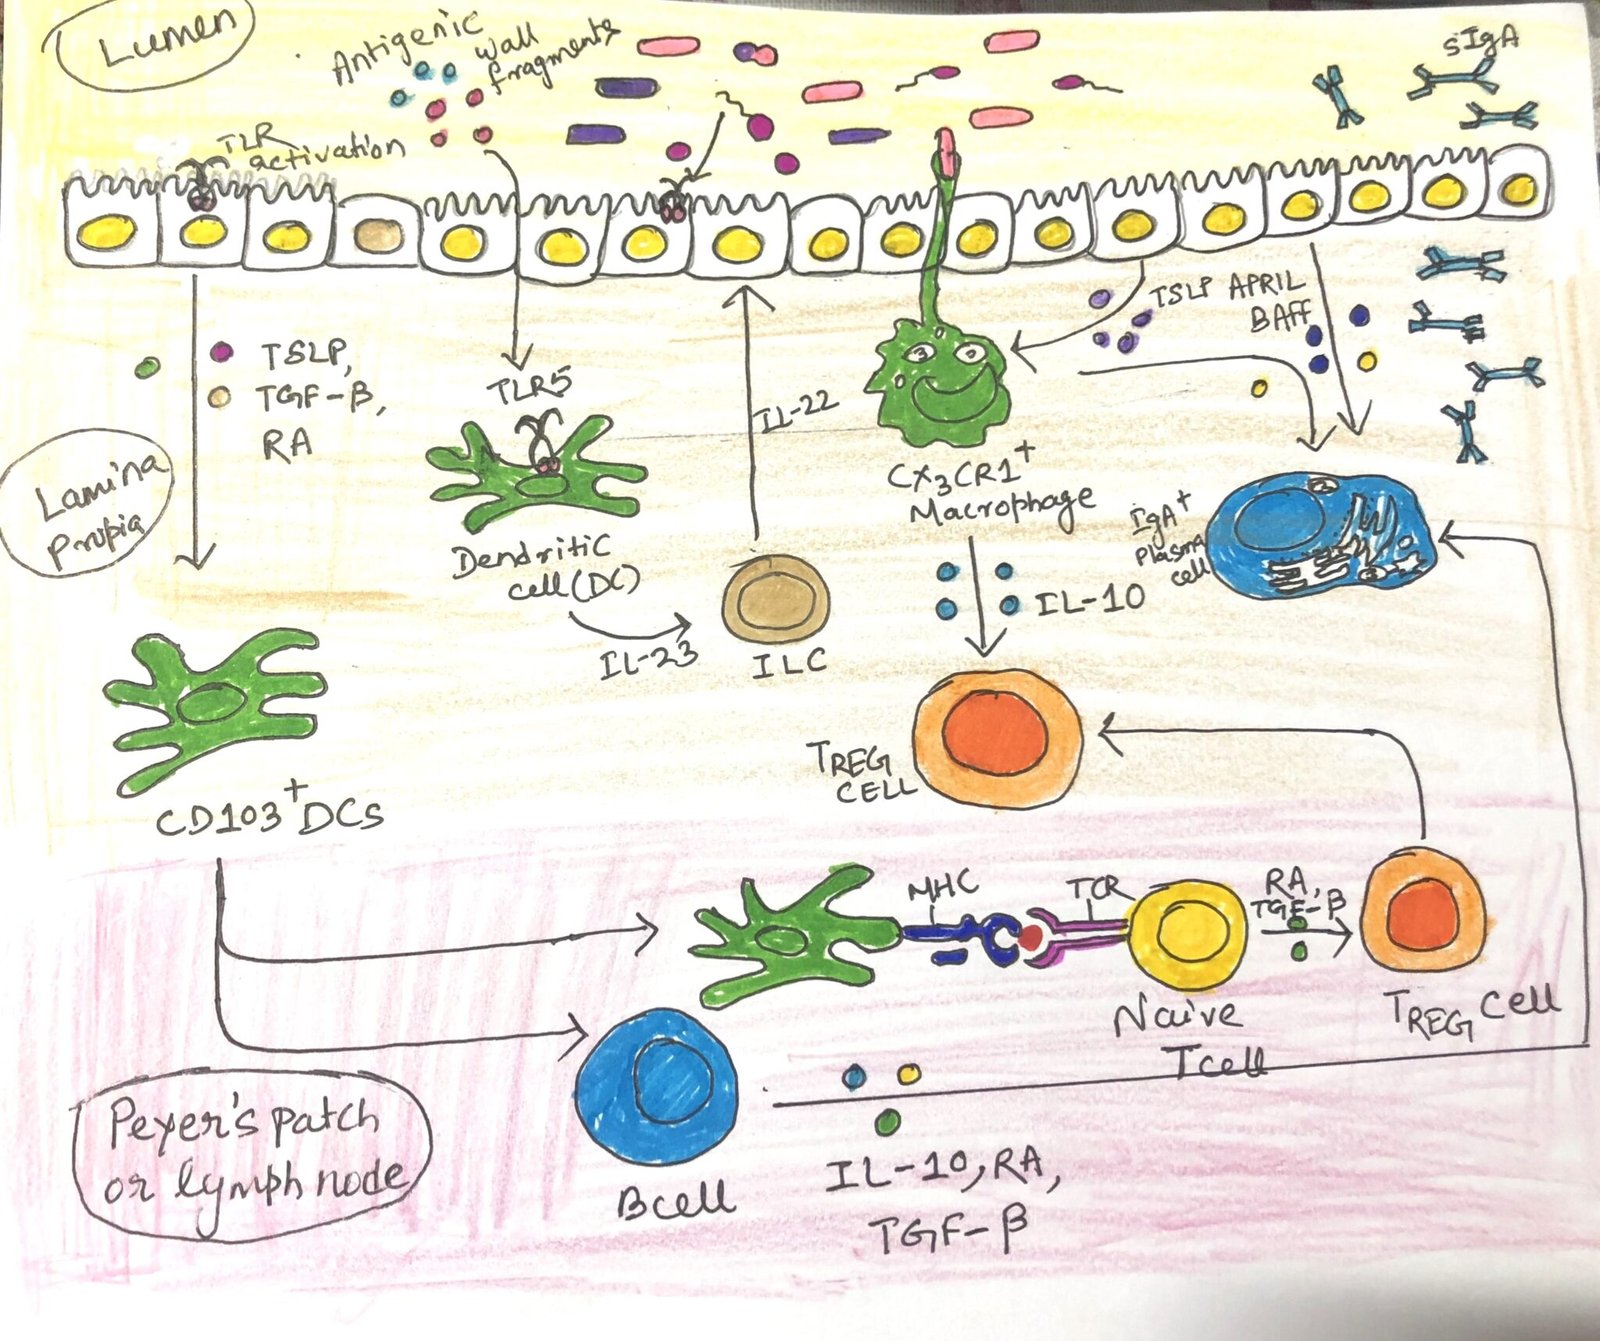 Lumen
Antigenic
wall
fragments
sIgA
TLR
activation
TSLP,
TGF-β,
RA
TLR5
IL-22
TSLP APRIL
BAFF
Lamina
propia
Dendritic
cell (DC)
CX3CR1+
Macrophage
IgA+
Plasma
cell
IL-23
ILC
IL-10
TREG
CELL
CD103+DCs
MHC
TCR
RA,
TGF-β
Naive
Tcell
TREG cell
Peyer's patch
or lymph node
Bcell
IL-10, RA,
TGF-β